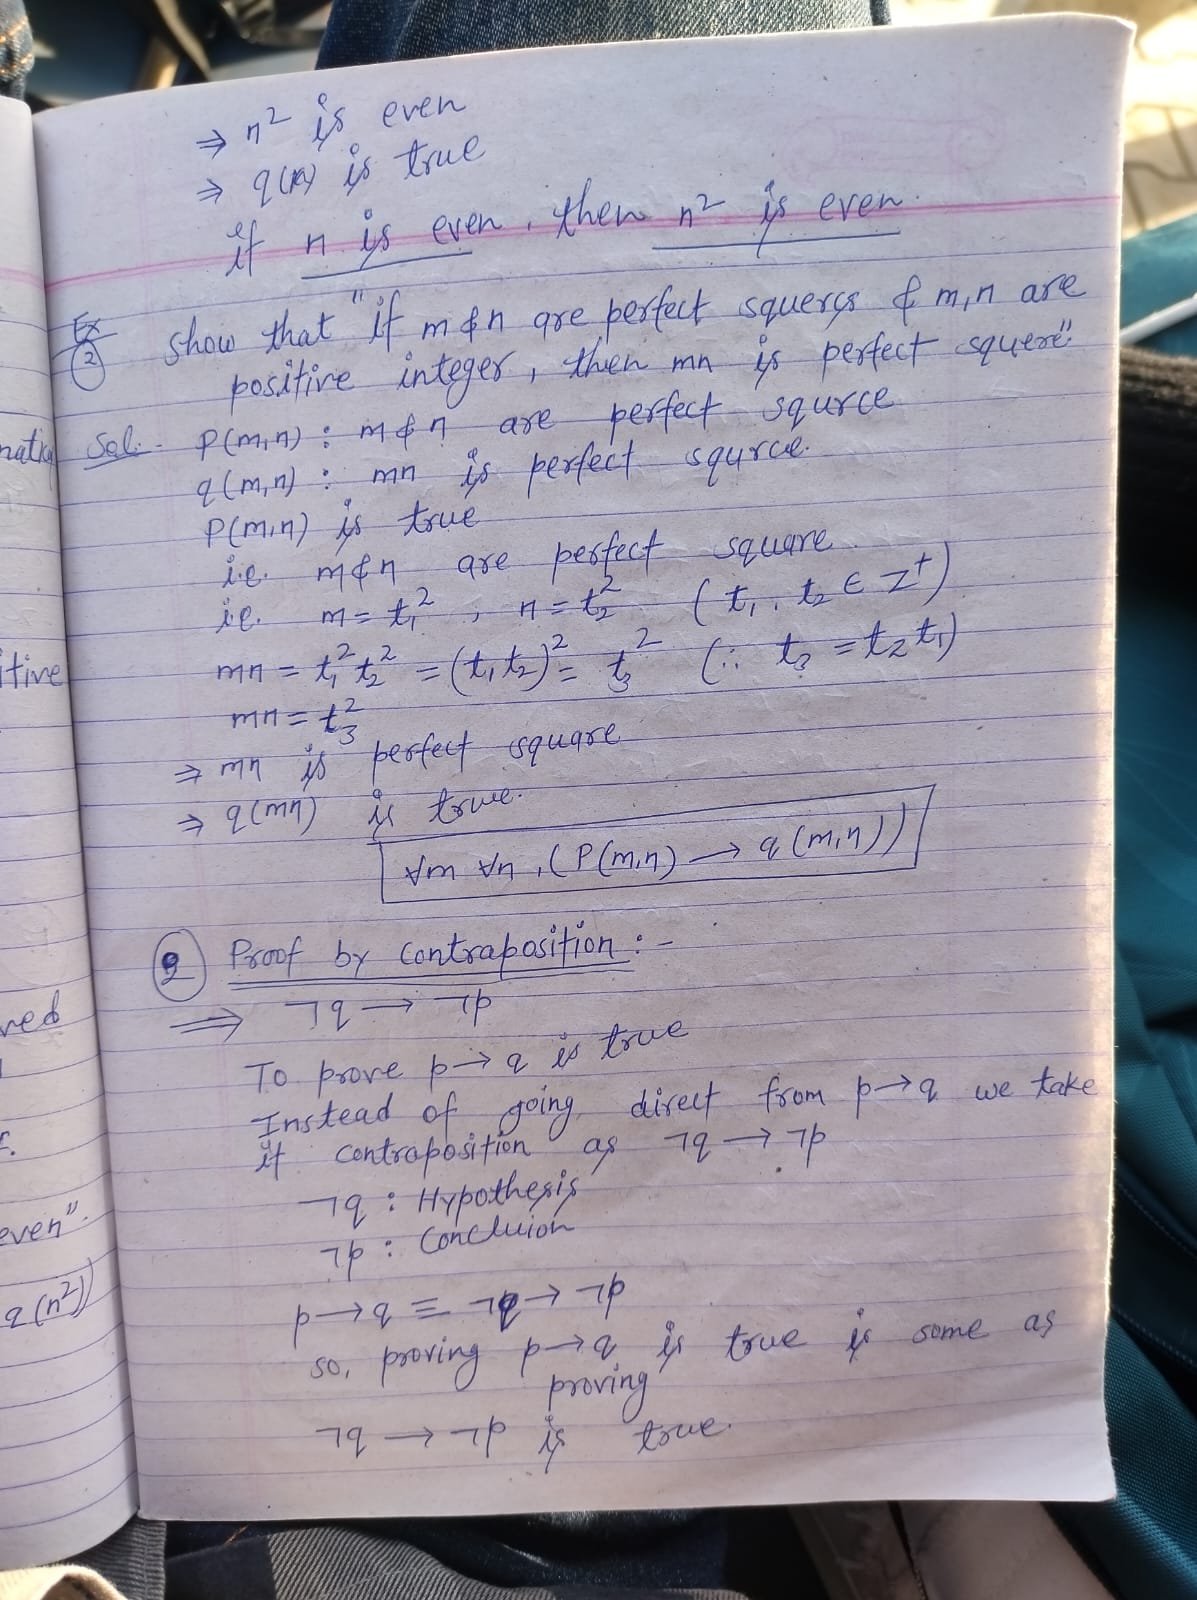 ⇒ n² is even
⇒ q(n) is true
if n is even, then n² is even.
Ex
2 Show that "if m & n are perfect squeres & m,n are
positive integer, then mn is perfect squere"
Sol:- P(m,n) : m & n are perfect squrce
q(m,n) : mn is perfect squrce.
P(m,n) is true
i.e. m & n are perfect square
i.e. m = t₁² , n = t₂² (t₁, t₂ ∈ Z⁺)
mn = t₁² t₂² = (t₁ t₂)² = t₃² (∵ t₃ = t₂ t₁)
mn = t₃²
⇒ mn is perfect square
⇒ q(mn) is true.
∀m ∀n, (P(m,n) → q(m,n))
2 Proof by Contraposition :-
⇒ ¬q → ¬p
To prove p → q is true
Instead of going direct from p → q we take
it contraposition as ¬q → ¬p
¬q : Hypothesis
¬p : Concluion
p → q ≡ ¬q → ¬p
so, proving p → q is true is some as
proving
¬q → ¬p is true.
itive
even".
q(n²))